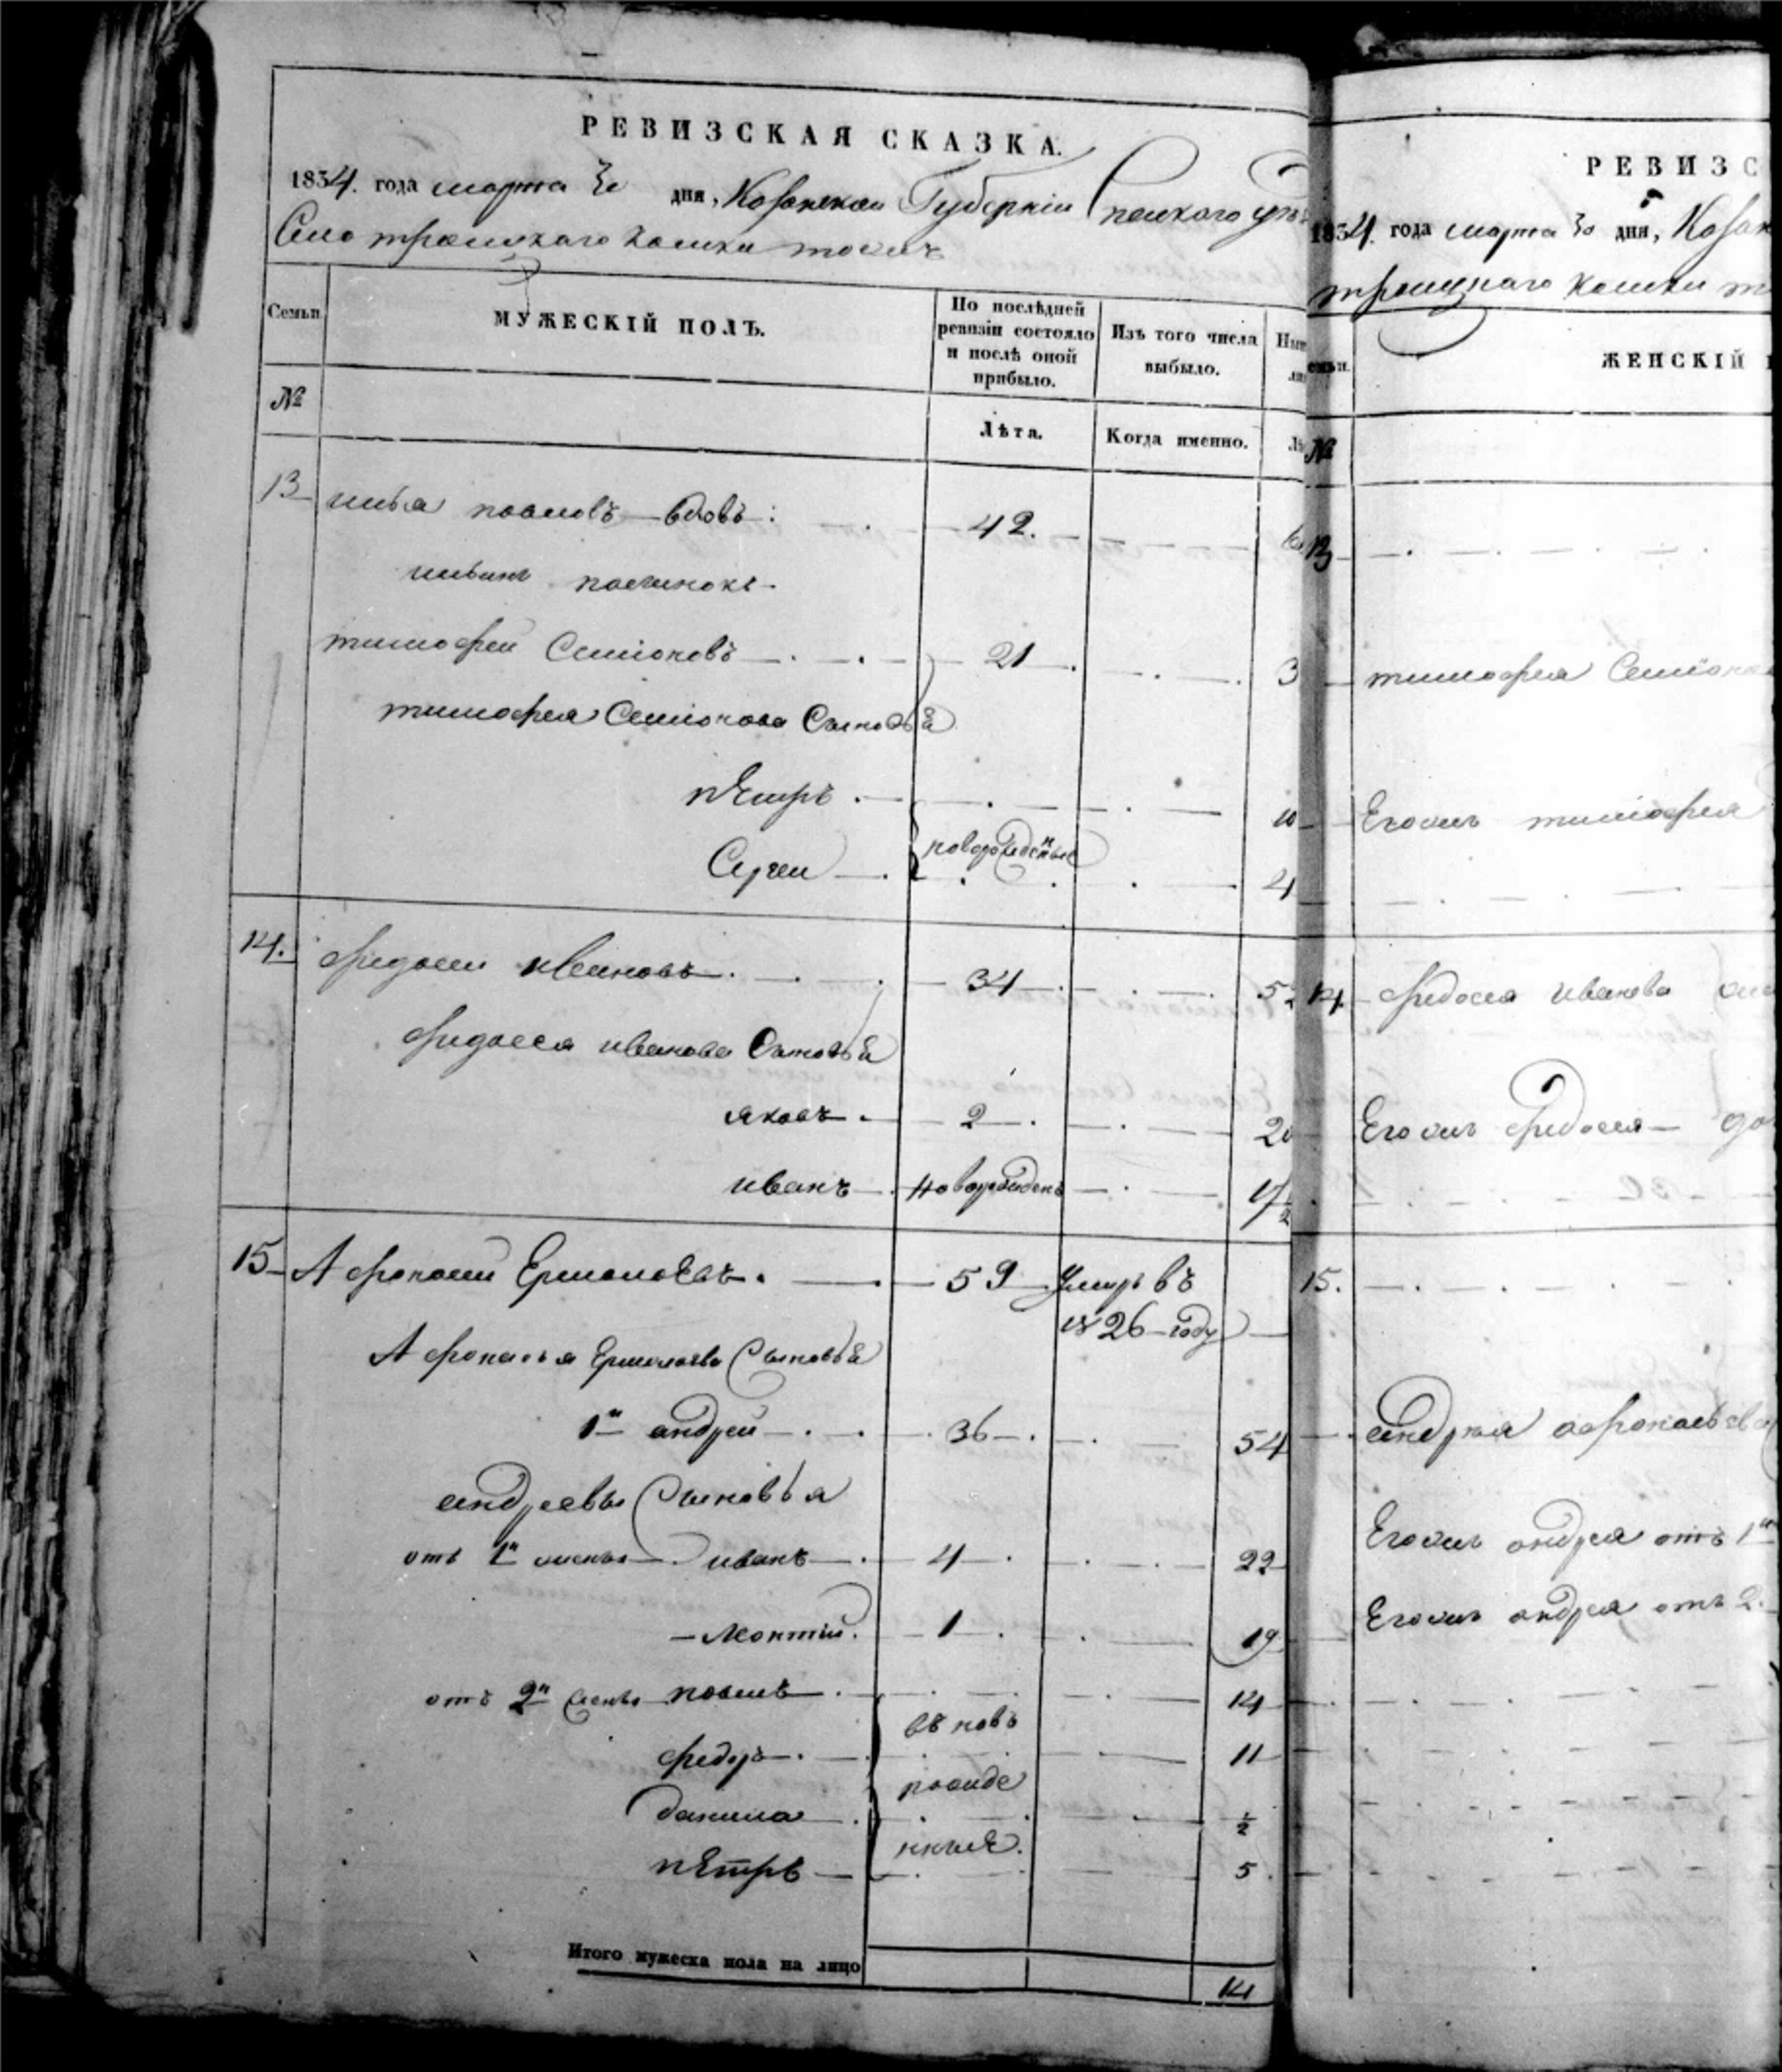 РЕВИЗСКАЯ СКАЗКА.
1834. года марта 30 дня, Казанской Губернии Спаского
Село троицкаго тожъ
Семьи
№
МУЖЕСКІЙ ПОЛЪ.
По послѣдней ревизіи состояло и послѣ оной прибыло.
Лѣта.
Изъ того числа выбыло.
Когда именно.
13 илья павловъ вдовъ: 42.
тимофеи Семіоновъ 21 3
тимофея Семіонова Сыновья
пЕтръ 10
новорожденные
Сергеи 4
14. федосеи ивановъ 34 5
федосея иванова Сыновья
яковъ 2 20
иванъ новорожденъ 1/2
15 Афонасеи Ермолаевъ. 59 Умеръ въ
1826 году
Афонасья Ермолаева Сыновья
1й андреи 36 54
андреевы Сыновья
отъ 1й жены иванъ 4 22
леонтии. 1 19
отъ 2й жены павелъ 14
въ новь
федоръ 11
рожде
данила 1/2
нные.
пЕтръ 5
Итого мужеска пола на лицо 14
РЕВИЗС
1834. года марта 30 дня, Казан
троицкаго
№
ЖЕНСКІЙ
13
тимофея Семіонова
Его тимофея
14. федосея иванова
Его федосея
15.
андрея афонасьева
Его андрея отъ 1й
Его андрея отъ 2.